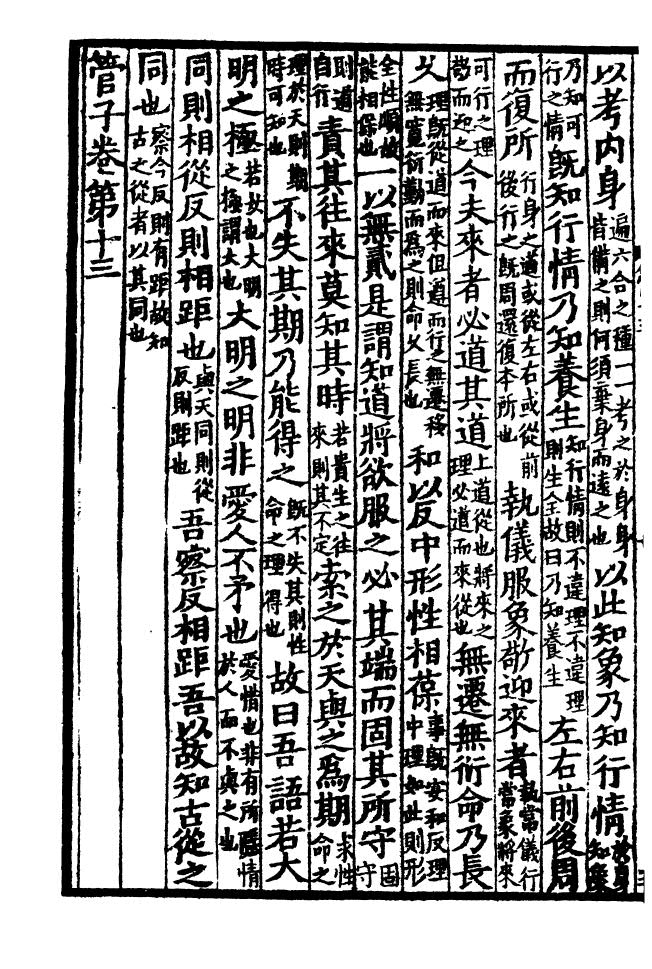 以考内身遍六合之種一一考之於身身皆備之則何須棄身而遠之也以此知象乃知行情於身知象
乃知可行之情既知行情乃知養生知行情則不違理不違理則生全故曰乃知養生左右前後周
而復所行身之道或從左右或從前後行之既周還復本所也執儀服象敬迎來者執當儀行當象將來
可行之理敬而迎之今夫來者必道其道上道從也將來之理必道而來從也無遷無衍命乃長
久理既從道而來但道而行之無遷移無寬衍勤而為之則命久長也和以反中形性相葆事既安和反理中理如此則形
全性順故能相保也一以無貳是謂知道將欲服之必其端而固其所守固守
則道自行責其往來莫知其時若責生之往來則其不定索之於天與之為期求性命之
理於天則期時可知也不失其期乃能得之既不失其期則性命之理得也故曰吾語若大
明之極若故也大明之極謂太也大明之明非愛人不予也愛惜也非有所隱情於人而不與之也
同則相從反則相距也與天同則從反則距也吾察反相距吾以故知古從之
同也察今反則有距故知古之從者以其同也
管子卷第十三